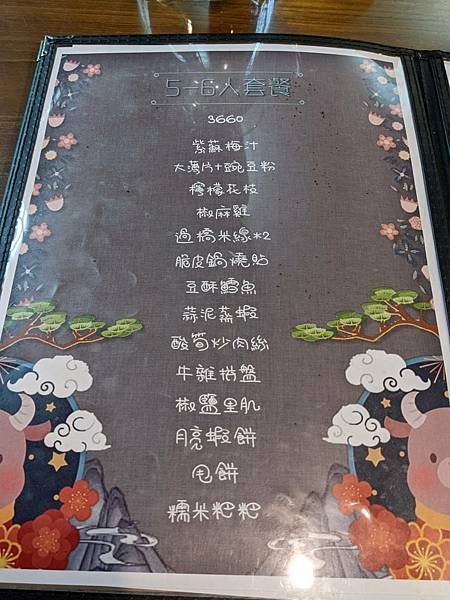 5-6人套餐
3660
紫蘇梅汁
大薄片+豌豆粉
檸檬花枝
椒麻雞
過橋米線*2
脆皮鍋燒貼
豆酥鱈魚
蒜泥蒸蝦
酸筍炒肉絲
牛雜拼盤
椒鹽里肌
月亮蝦餅
甩餅
糯米粑粑